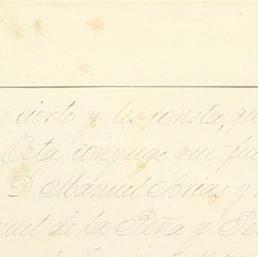 cierto y les consta, que
Octa, conyuge que fue
D Manuel Arias y
nuel de la Peña y Pe